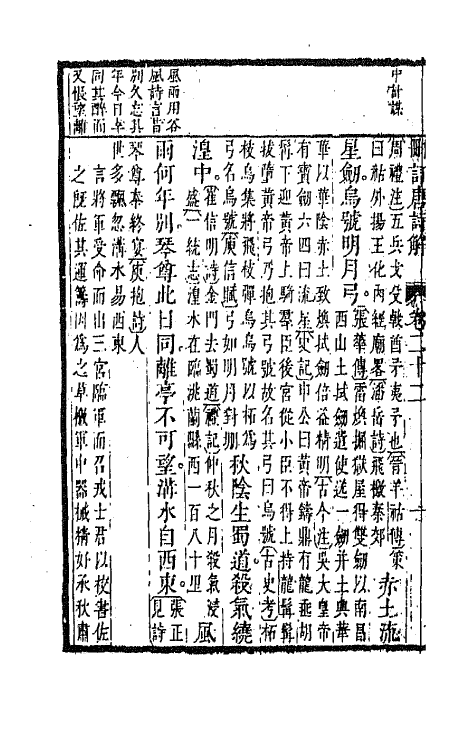 中計謀
風雨用谷
風詩言昔
別久忘其
年今日卒
同其醉而
又悵望離
刪訂唐詩解 卷二十二
周禮注五兵戈殳戟酋矛夷矛也晉羊祜傳策
曰祜外揚王化內經廟畧潘岳詩飛檄秦郊
赤土流
星劍烏號明月弓
張華傳雷煥掘獄屋得雙劍以南昌
西山土拭劍遣使送一劍并土與華
華以華陰赤土致煥拭劍倍益精明古今注吳大皇帝
有寶劍六四曰流星史記申公曰黃帝鑄鼎有龍垂胡
髯下迎黃帝上騎羣臣後宮從小臣不得上持龍髯髯
拔墮黃帝弓乃抱其弓號故名其弓曰烏號古史考柘
枝烏集將飛枝彈烏烏號以柘爲
弓名烏號庾信賦弓如明月對堋
秋陰生蜀道殺氣繞
湟中
崔信明詩金門去蜀道禮記仲秋之月殺氣浸
盛一統志湟水在臨洮蘭縣西一百八十里
風
雨何年別琴尊此日同離亭不可望溝水自西東
張正
見詩
琴尊奉終宴庾抱詩人
世多飄忽溝水易西東
言將軍受命而出三宮臨軍而召戎士君以校書佐
之旣佐其運籌因爲之草檄軍中器械精好承秋肅